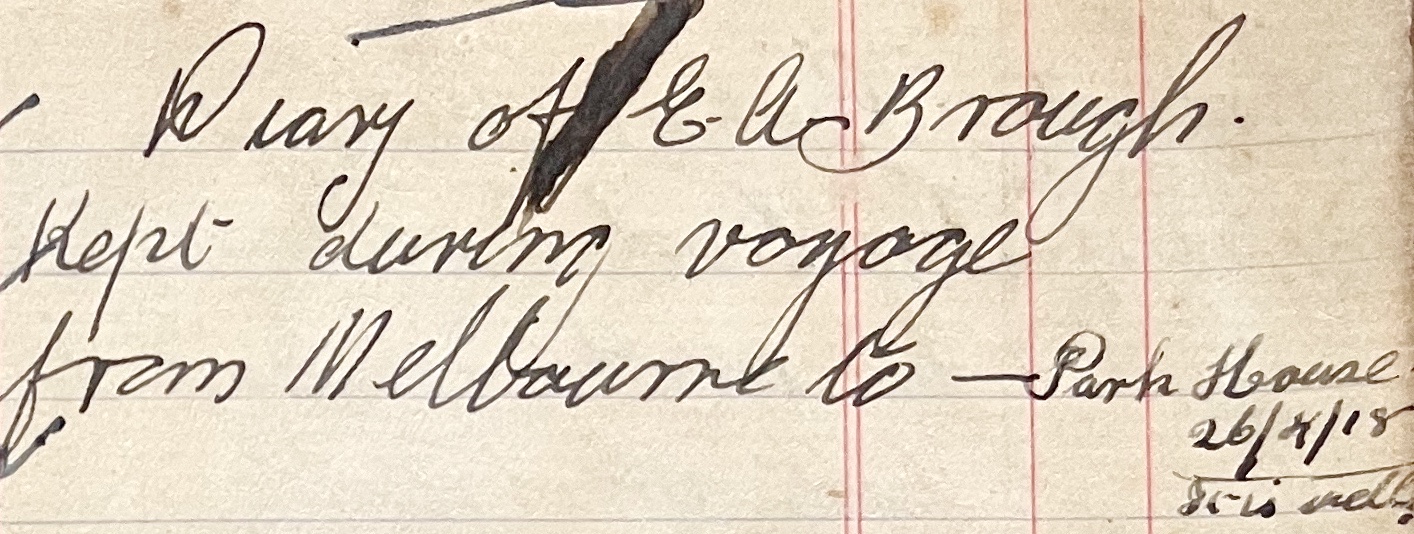 Diary of E. A. Brough.
Kept during voyage
from Melbourne to — Park House
26/4/18
is well